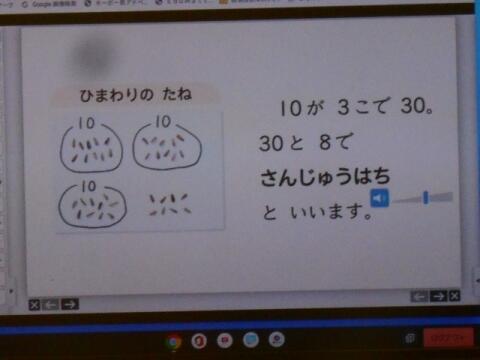 Google 画像検索
ひまわりの たね
10
10
10
10が 3こで 30。
30と 8で
さんじゅうはち
と いいます。